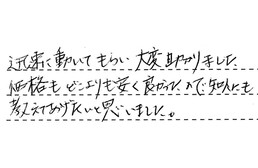 迅速に動いてもらい大変助かりました
価格もどこよりも安く良かったので知人にも
教えてあげたいと思いました。